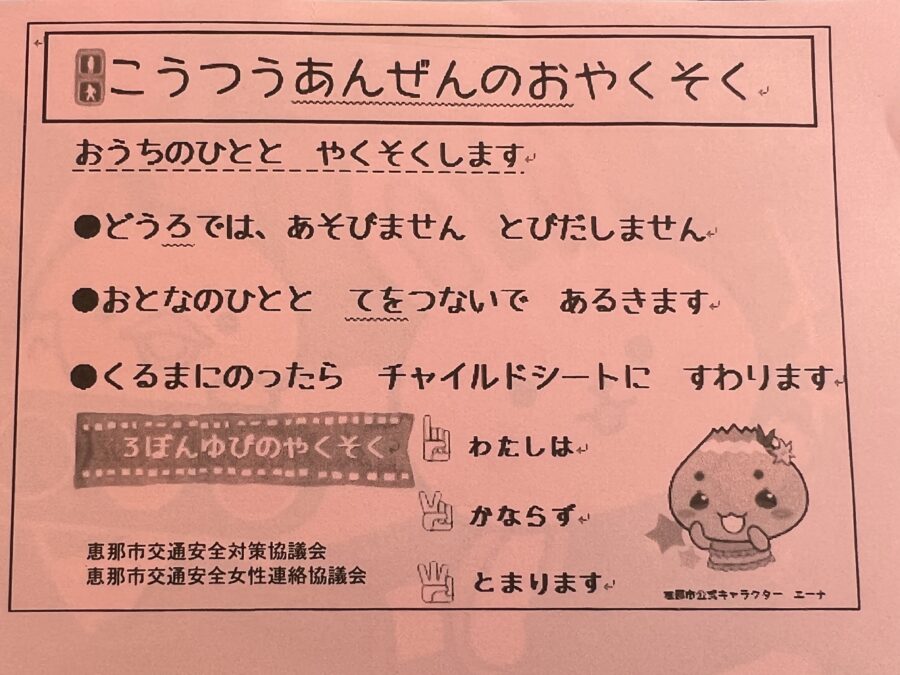 こうつうあんぜんのおやくそく
おうちのひとと　やくそくします
●どうろでは、あそびません　とびだしません
●おとなのひとと　てをつないで　あるきます
●くるまにのったら　チャイルドシートに　すわります
3ぼんゆびのやくそく
わたしは
かならず
とまります
恵那市交通安全対策協議会
恵那市交通安全女性連絡協議会
恵那市公式キャラクター　エーナ